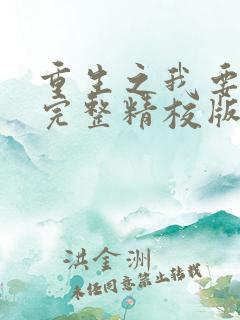 重生之我要
完整精校版
洪金洲
未经同意禁止转载